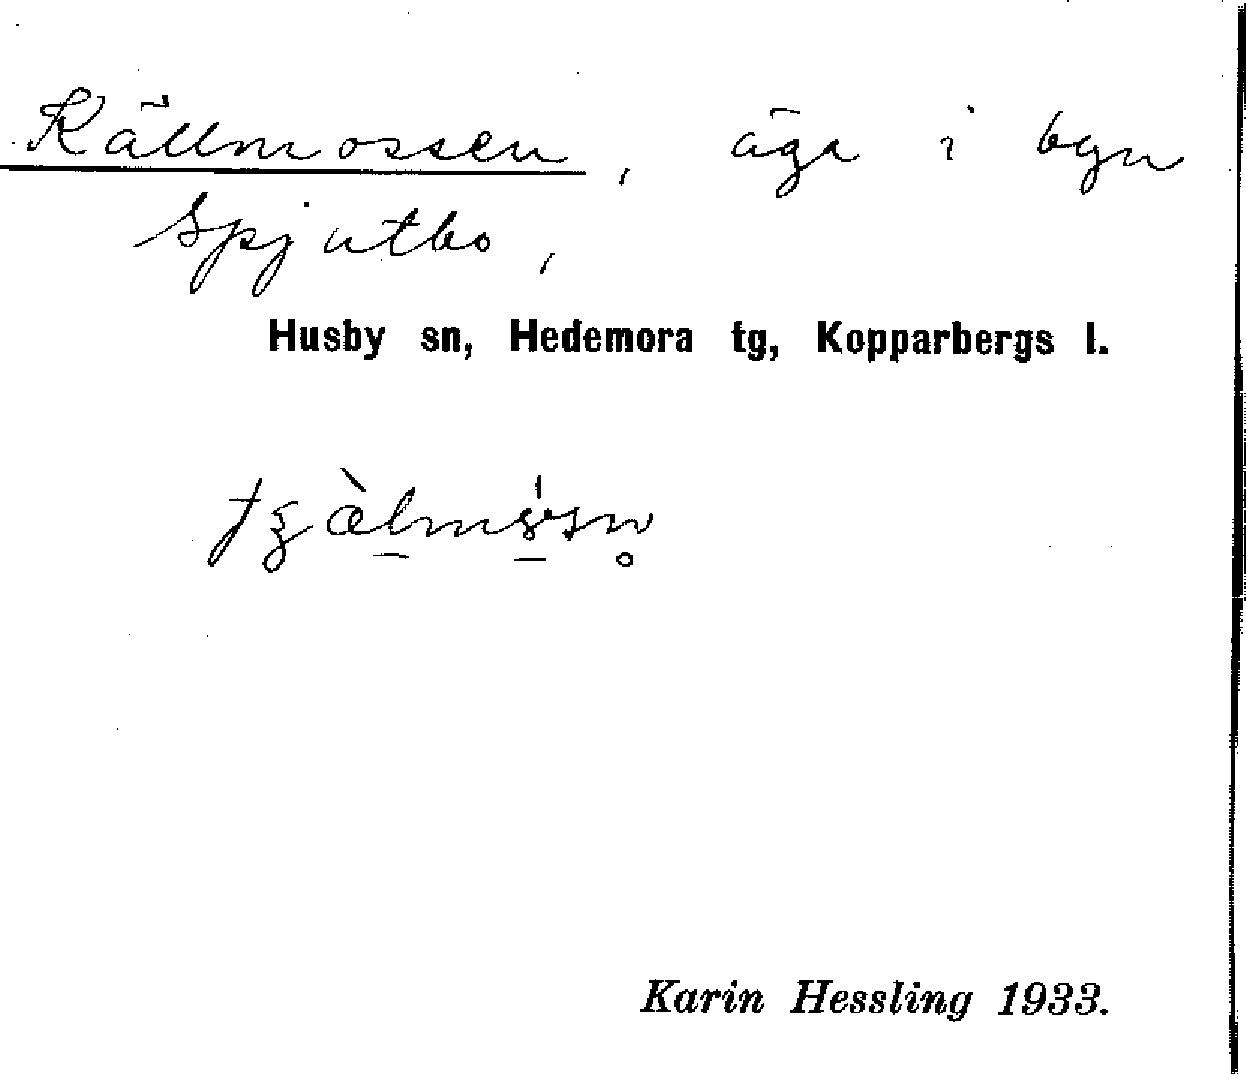 Källmossen, äga i byn
Spjutbo,
Husby sn, Hedemora tg, Kopparbergs l.
Karin Hessling 1933.